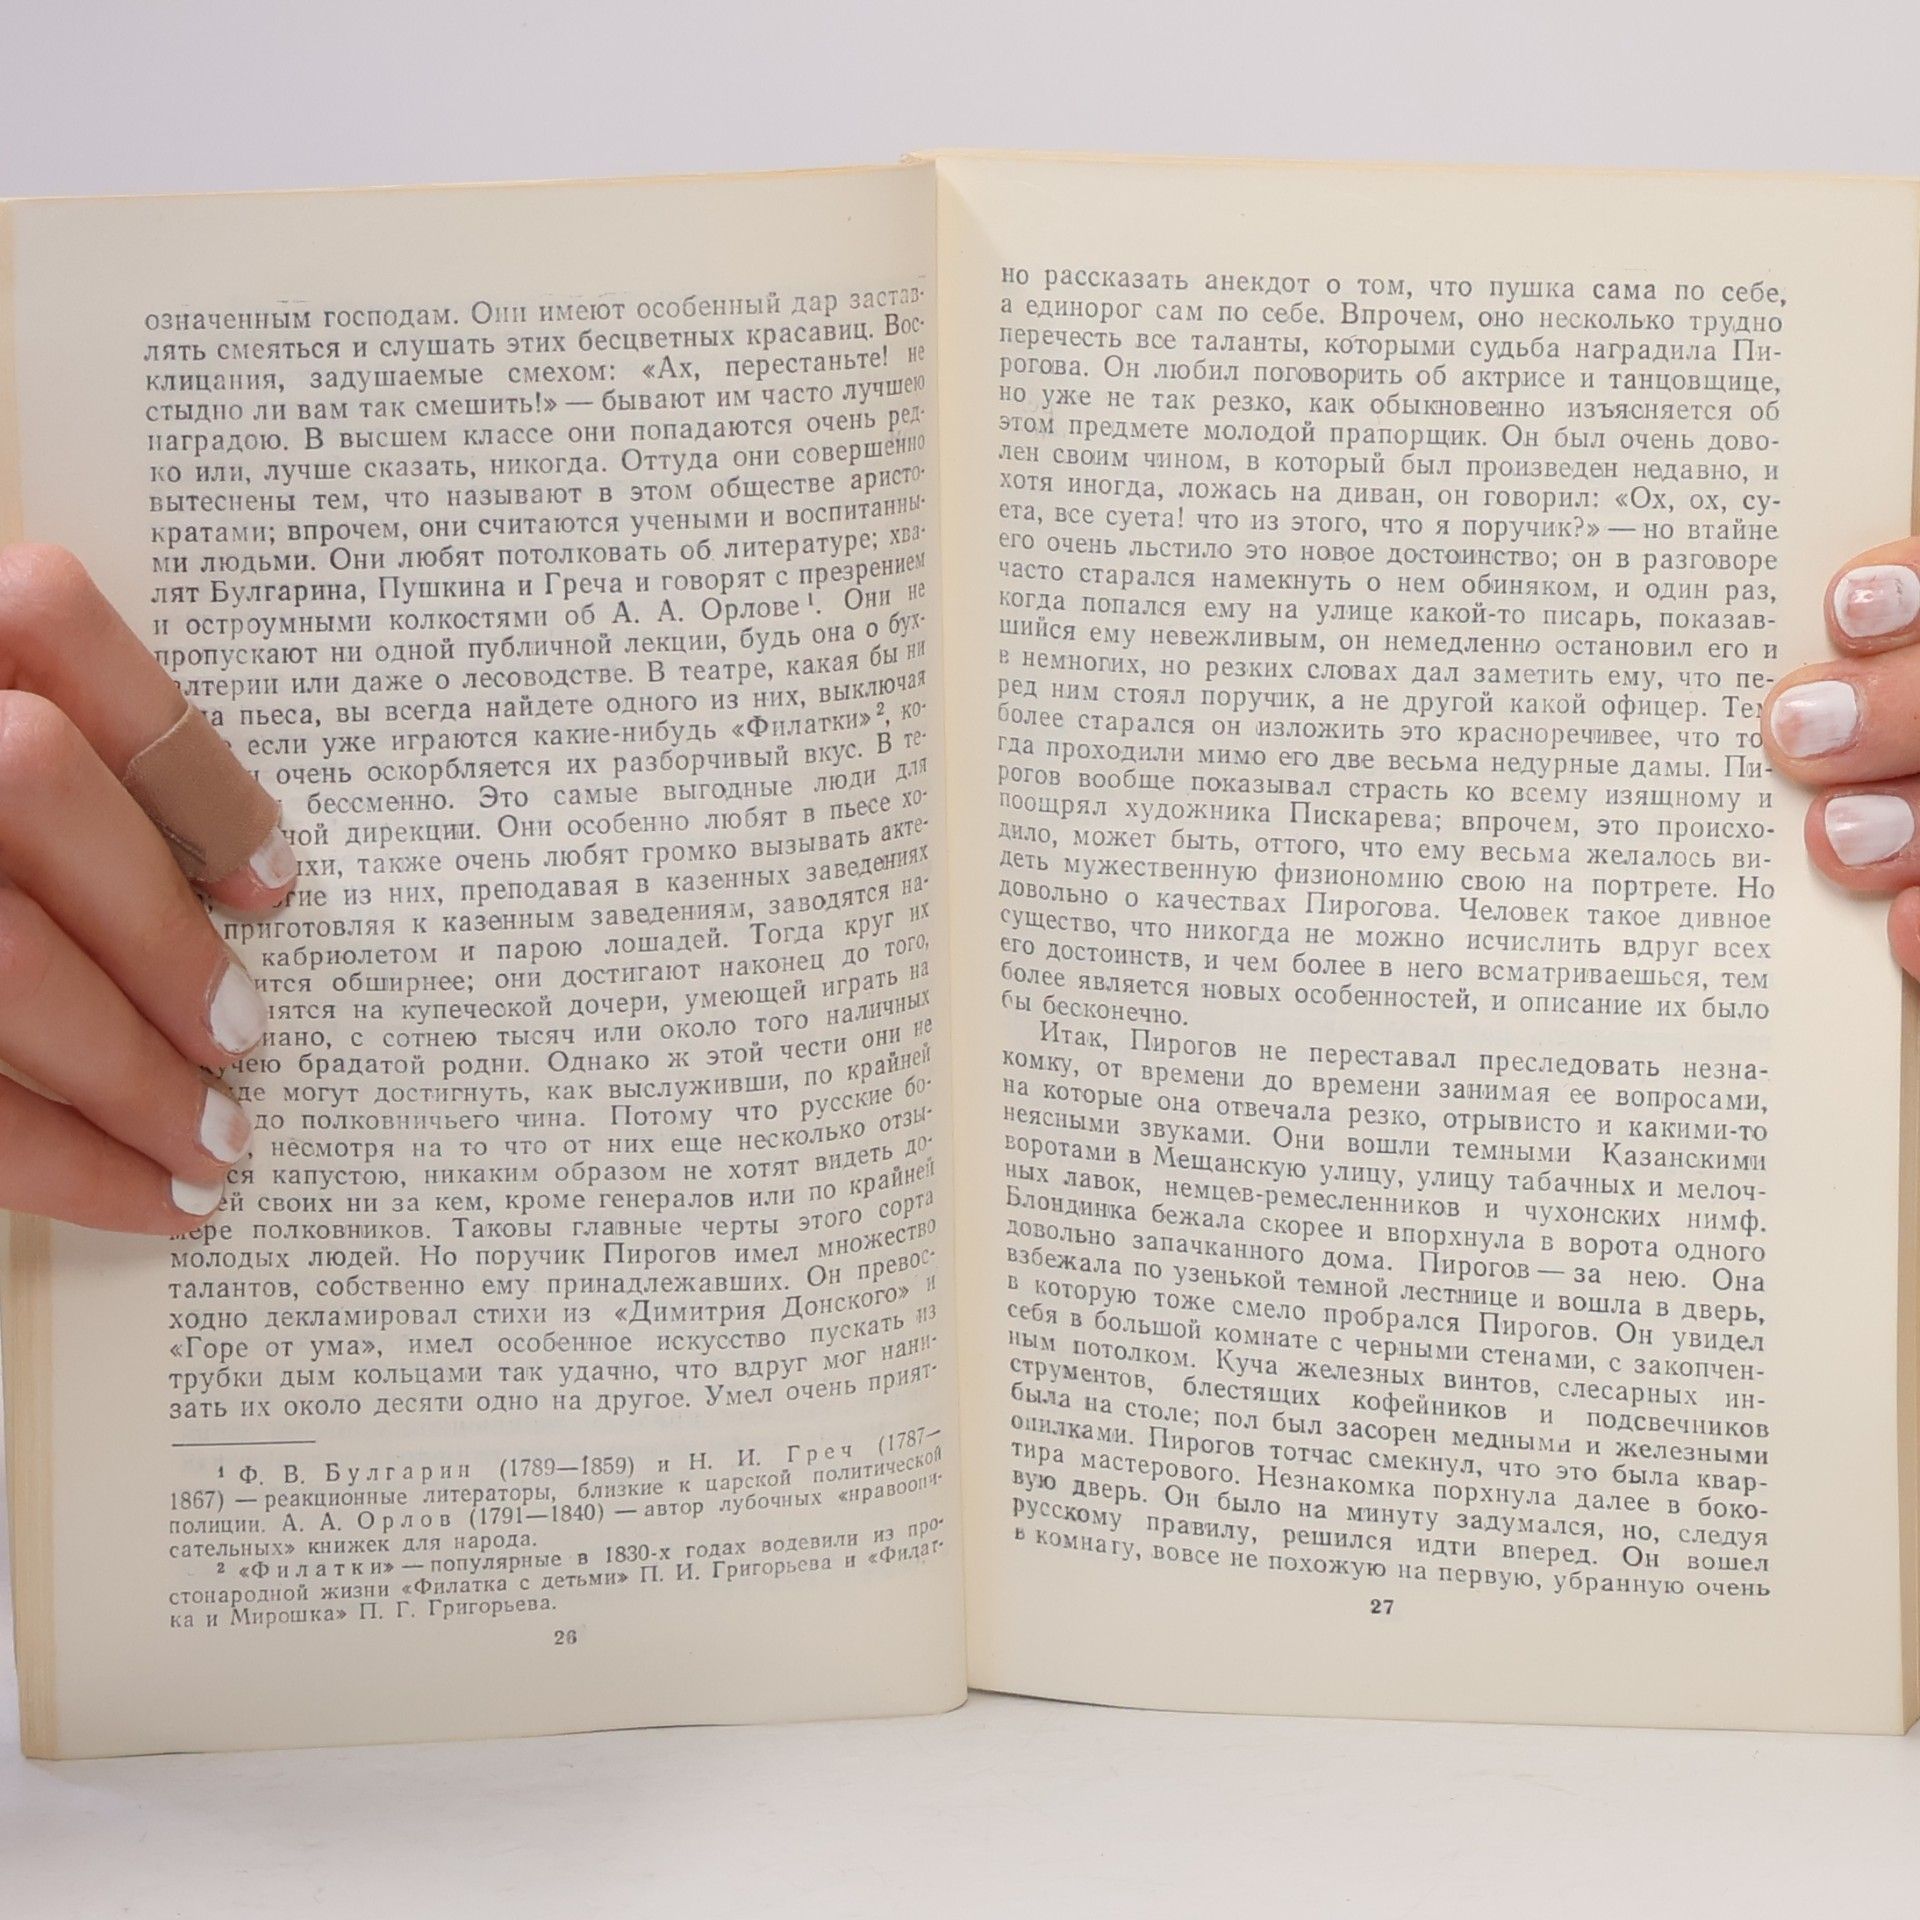 означенным господам. Они имеют особенный дар застав-
лять смеяться и слушать этих бесцветных красавиц. Вос-
клицания, задушаемые смехом: «Ах, перестаньте! не
стыдно ли вам так смешить!» — бывают им часто лучшею
наградою. В высшем классе они попадаются очень ред-
ко или, лучше сказать, никогда. Оттуда они совершенно
вытеснены тем, что называют в этом обществе аристо-
кратами; впрочем, они считаются учеными и воспитанны-
ми людьми. Они любят потолковать об литературе; хва-
лят Булгарина, Пушкина и Греча и говорят с презрением
и остроумными колкостями об А. А. Орлове¹. Они не
пропускают ни одной публичной лекции, будь она о бух-
алтерии или даже о лесоводстве. В театре, какая бы ни
пьеса, вы всегда найдете одного из них, выключая
если уже играются какие-нибудь «Филатки»², ко-
очень оскорбляется их разборчивый вкус. В те-
бессменно. Это самые выгодные люди для
ной дирекции. Они особенно любят в пьесе хо-
ихи, также очень любят громко вызывать акте-
гие из них, преподавая в казенных заведениях
приготовляя к казенным заведениям, заводятся на-
кабриолетом и парою лошадей. Тогда круг их
ится обширнее; они достигают наконец до того,
нятся на купеческой дочери, умеющей играть на
иано, с сотнею тысяч или около того наличных
учею брадатой родни. Однако ж этой чести они не
де могут достигнуть, как выслуживши, по крайней
до полковничьего чина. Потому что русские бо-
, несмотря на то что от них еще несколько отзы-
ся капустою, никаким образом не хотят видеть до-
ей своих ни за кем, кроме генералов или по крайней
мере полковников. Таковы главные черты этого сорта
молодых людей. Но поручик Пирогов имел множество
талантов, собственно ему принадлежавших. Он превос-
ходно декламировал стихи из «Димитрия Донского» и
«Горе от ума», имел особенное искусство пускать из
трубки дым кольцами так удачно, что вдруг мог нани-
зать их около десяти одно на другое. Умел очень прият-
¹ Ф. В. Булгарин (1789—1859) и Н. И. Греч (1787—
1867) — реакционные литераторы, близкие к царской политической
полиции. А. А. Орлов (1791—1840) — автор лубочных «нравоопи-
сательных» книжек для народа.
² «Филатки» — популярные в 1830-х годах водевили из про-
стонародной жизни «Филатка с детьми» П. И. Григорьева и «Филат-
ка и Мирошка» П. Г. Григорьева.
26
но рассказать анекдот о том, что пушка сама по себе,
а единорог сам по себе. Впрочем, оно несколько трудно
перечесть все таланты, которыми судьба наградила Пи-
рогова. Он любил поговорить об актрисе и танцовщице,
но уже не так резко, как обыкновенно изъясняется об
этом предмете молодой прапорщик. Он был очень дово-
лен своим чином, в который был произведен недавно, и
хотя иногда, ложась на диван, он говорил: «Ох, ох, су-
ета, все суета! что из этого, что я поручик?» — но втайне
его очень льстило это новое достоинство; он в разговоре
часто старался намекнуть о нем обиняком, и один раз,
когда попался ему на улице какой-то писарь, показав-
шийся ему невежливым, он немедленно остановил его и
в немногих, но резких словах дал заметить ему, что пе-
ред ним стоял поручик, а не другой какой офицер. Тем
более старался он изложить это красноречивее, что то
гда проходили мимо его две весьма недурные дамы. Пи-
рогов вообще показывал страсть ко всему изящному и
поощрял художника Пискарева; впрочем, это происхо-
дило, может быть, оттого, что ему весьма желалось ви-
деть мужественную физиономию свою на портрете. Но
довольно о качествах Пирогова. Человек такое дивное
существо, что никогда не можно исчислить вдруг всех
его достоинств, и чем более в него всматриваешься, тем
более является новых особенностей, и описание их было
бы бесконечно.
Итак, Пирогов не переставал преследовать незна-
комку, от времени до времени занимая ее вопросами,
на которые она отвечала резко, отрывисто и какими-то
неясными звуками. Они вошли темными Казанскими
воротами в Мещанскую улицу, улицу табачных и мелоч-
ных лавок, немцев-ремесленников и чухонских нимф.
Блондинка бежала скорее и впорхнула в ворота одного
довольно запачканного дома. Пирогов — за нею. Она
взбежала по узенькой темной лестнице и вошла в дверь,
в которую тоже смело пробрался Пирогов. Он увидел
себя в большой комнате с черными стенами, с закопчен-
ным потолком. Куча железных винтов, слесарных ин-
струментов, блестящих кофейников и подсвечников
была на столе; пол был засорен медными и железными
опилками. Пирогов тотчас смекнул, что это была квар-
тира мастерового. Незнакомка порхнула далее в боко-
вую дверь. Он было на минуту задумался, но, следуя
русскому правилу, решился идти вперед. Он вошел
в комнату, вовсе не похожую на первую, убранную очень
27